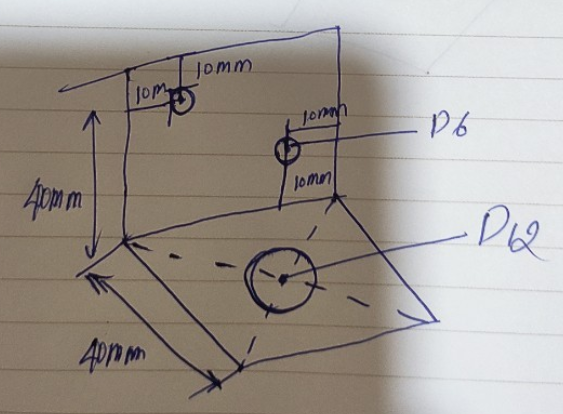 10mm
10m
10mm
D6
10mm
40mm
D12
40mm